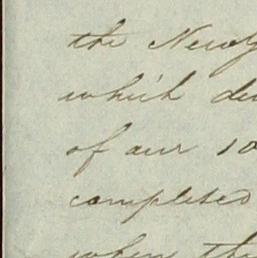 the
which
of our 10
completed
when the